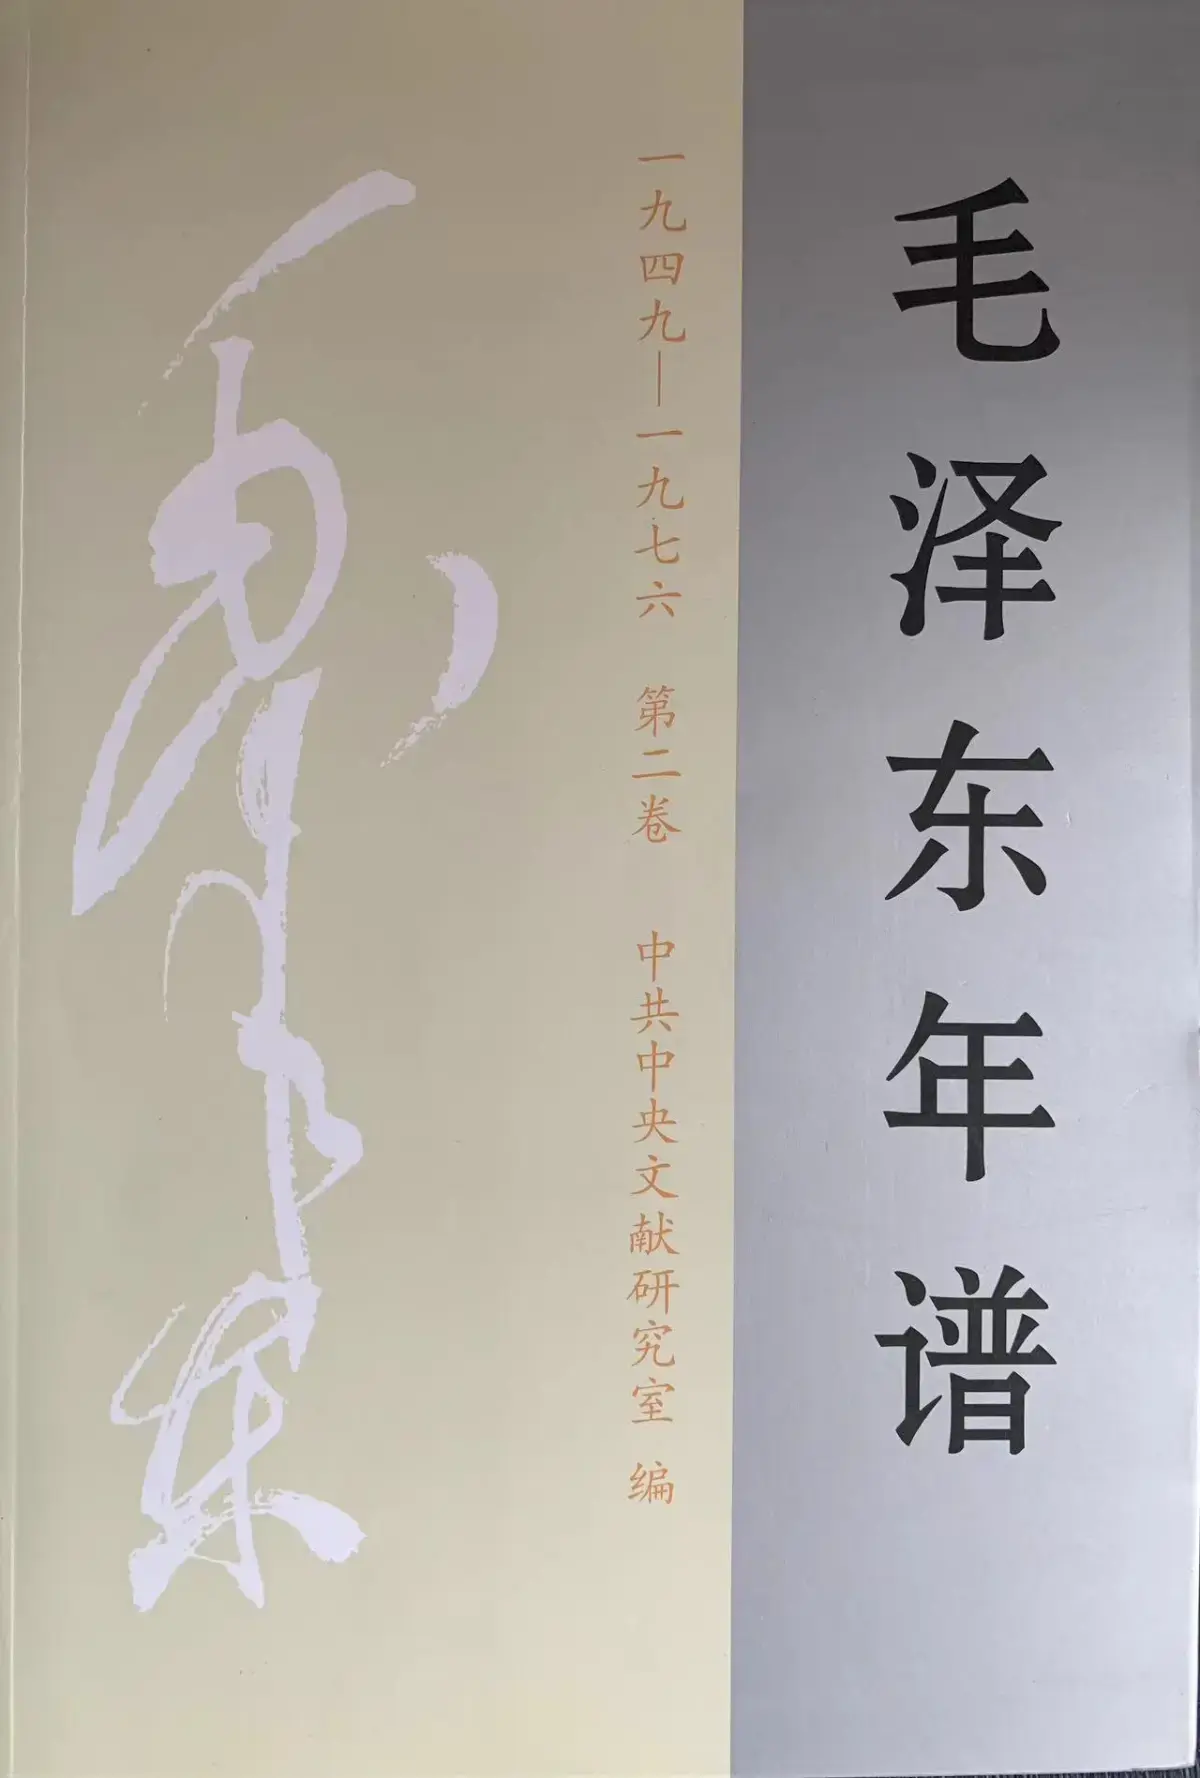 毛泽东年谱
一九四九—一九七六 第二卷 中共中央文献研究室 编
毛泽东